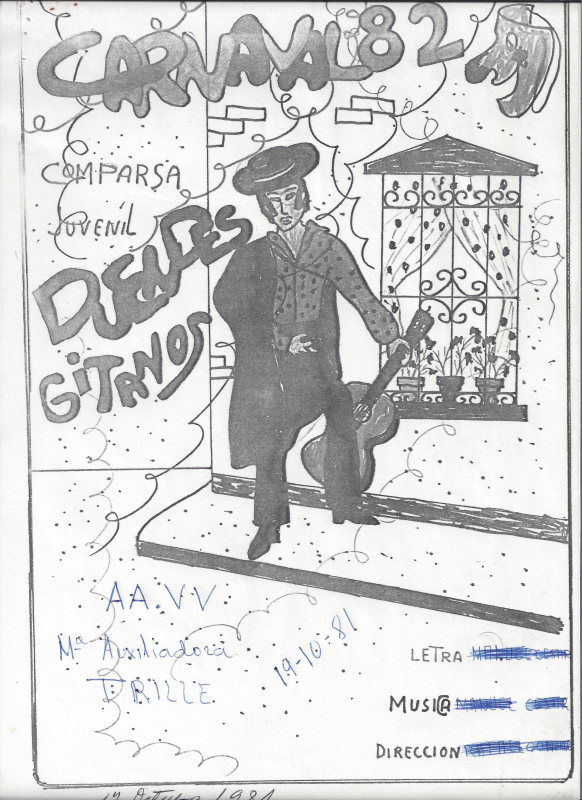 CARNAVAL 82
COMPARSA
JUVENIL
DUENDES
GITANOS
AA.VV
Mª Auxiliadora
TRILLE
19-10-81
LETRA
MUSICA
DIRECCION
1981